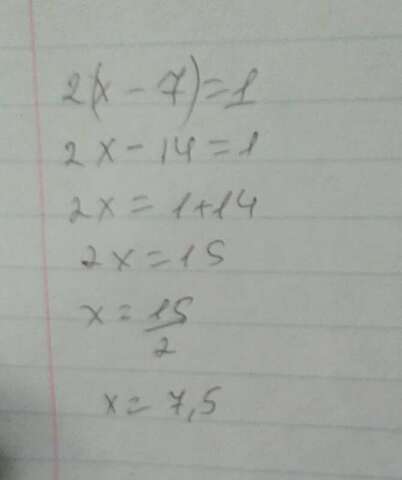 2(x - 7) = 1
2x - 14 = 1
2x = 1 + 14
2x = 15
x = 15/2
x = 7,5